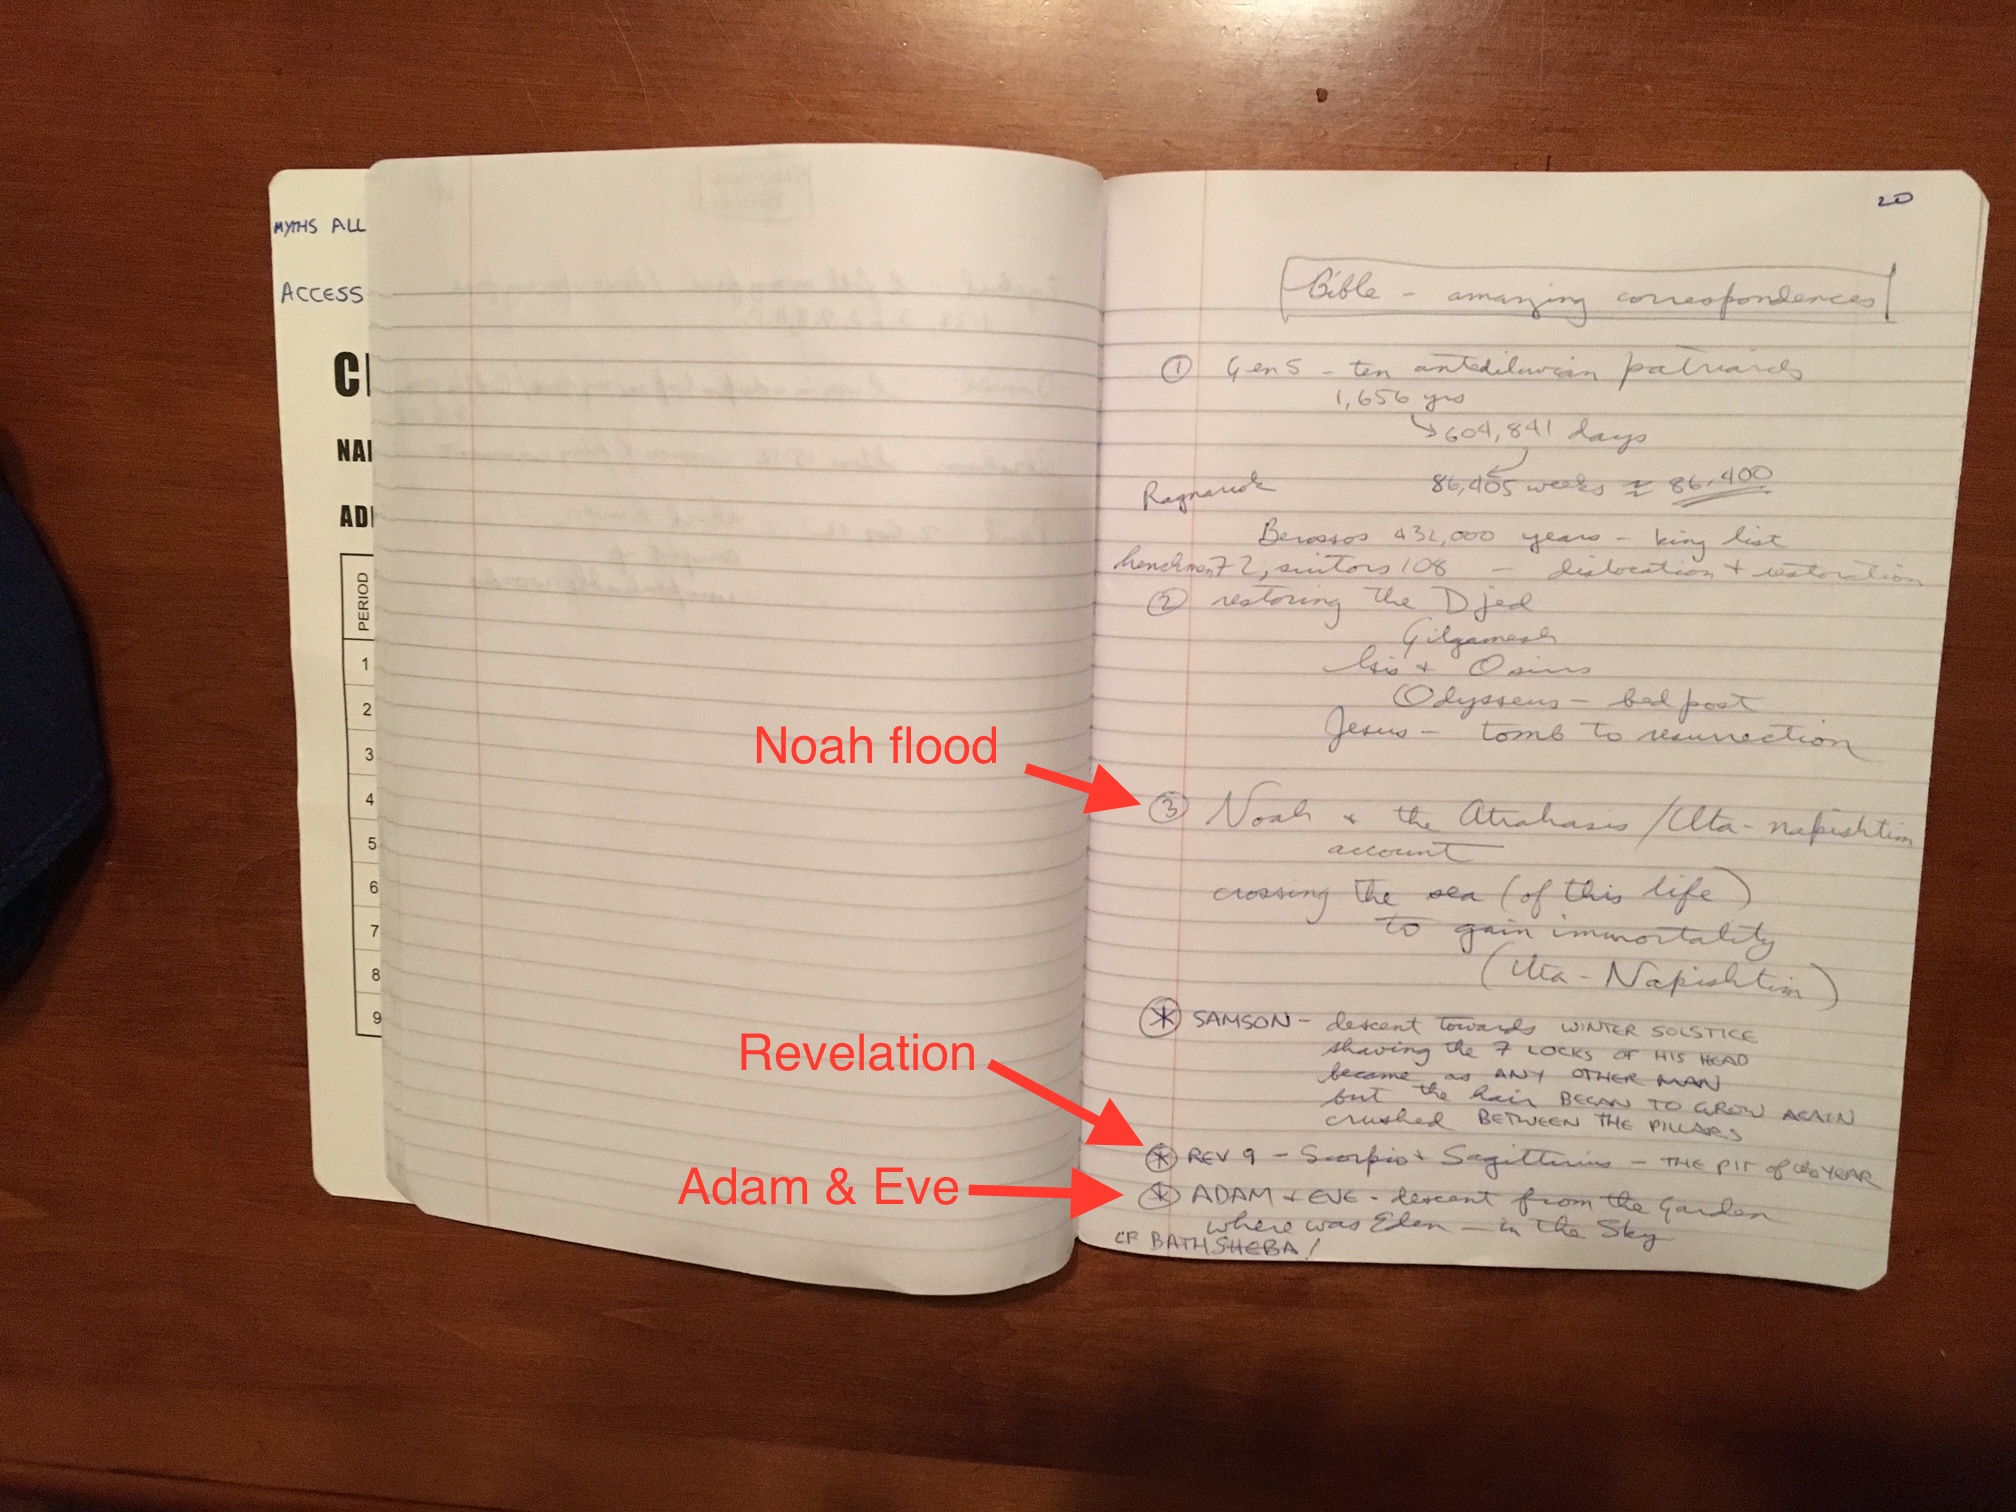 MYTHS ALL
ACCESS
NAI
ADI
PERIOD
1
2
3
4
5
6
7
8
9
Noah flood
Revelation
Adam & Eve
20
Bible - amazing correspondences
① Gen 5 - ten antediluvian patriarchs
1,656 yrs
↳ 604,841 days
86,405 weeks ≈ 86,400
Ragnarok
Berossos 432,000 years - king list
henchmen 72, suitors 108 - dislocation + restoration
② restoring the Djed
Gilgamesh
Isis + Osiris
Odysseus - bed post
Jesus - tomb to resurrection
③ Noah + the Atrahasis / Uta-napishtim
account
crossing the sea (of this life)
to gain immortality
(Uta-Napishtim)
* SAMSON - descent towards WINTER SOLSTICE
shaving the 7 LOCKS OF HIS HEAD
became as ANY OTHER MAN
but the hair BEGAN TO GROW AGAIN
crushed BETWEEN THE PILLARS
* REV 9 - Scorpio + Sagittarius - THE PIT of the YEAR
* ADAM + EVE - descent from the Garden
where was Eden - in the Sky
CF BATHSHEBA!